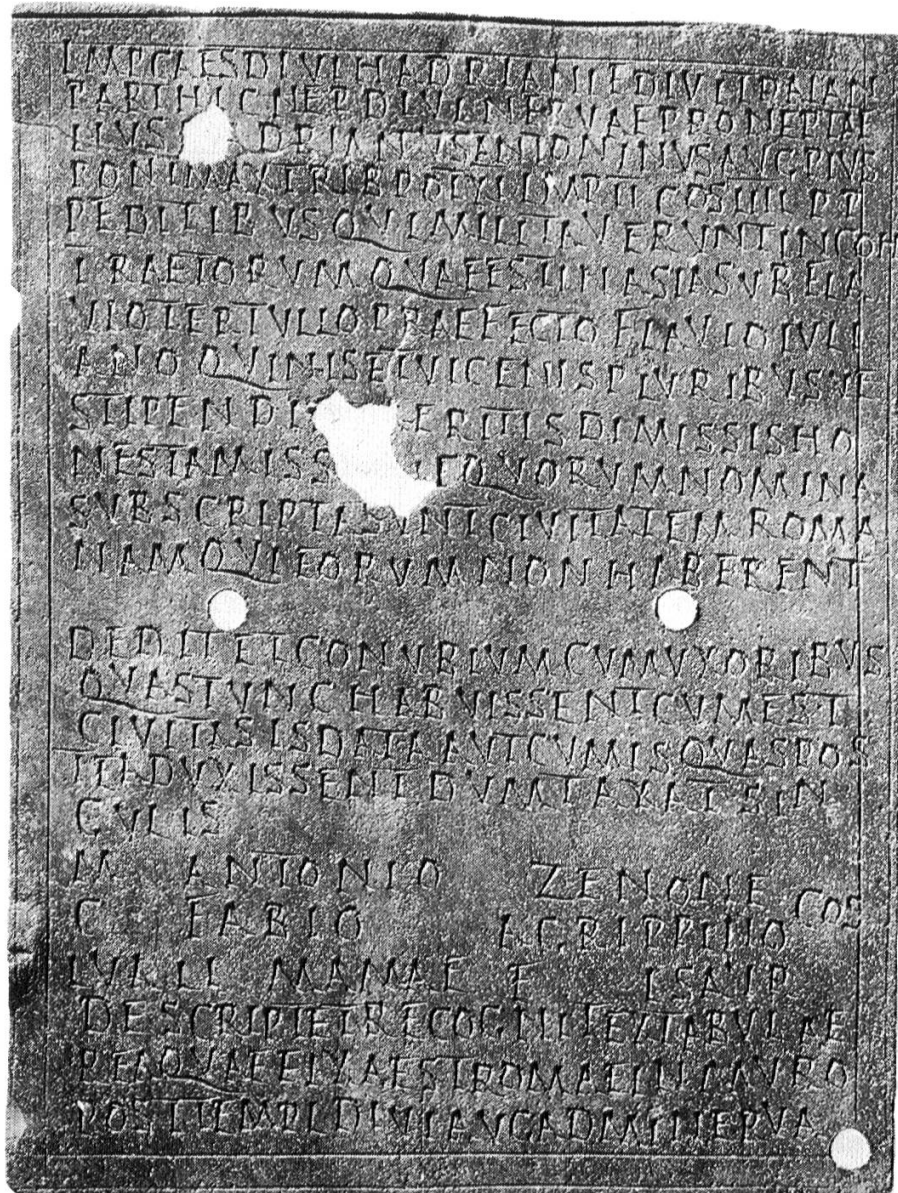 IMP CAES DIVI HADRIANI F DIVI TRAIAN
PARTHIC NEP DIVI NERVAE PRONEP TAE
LIVS DRIANVS ANTONINVS AVG PIVS
PONT MAX TRIB POT XI IMP II COS IIII P P
PEDITIBVS QVI MILITAVERVNT IN COH
I RAETORVM QVAE EST IN ASIA SVB FLA
VIO TERTVLLO PRAEFECTO FLAVIO IVLI
ANO QVINIS ET VICENIS PLVRIBVSVE
STIPENDI ERITIS DIMISSIS HO
NESTA MISS QVORVM NOMINA
SVBSCRIPTA SVNT CIVITATEM ROMA
NAM QVI EORVM NON HABERENT
DEDIT ET CONVBIVM CVM VXORIBVS
QVAS TVNC HABVISSENT CVM EST
CIVITAS IS DATA AVT CVM IS QVAS POS
TEA DVXISSENT DVMTAXAT SIN
GVLIS
M ANTONIO ZENONE COS
C FABIO AGRIPPINO
LVALI MAMAE F ISAVR
DESCRIPT ET RECOGNIT EX TABVLA AE
REA QVAE FIXA EST ROMAE IN MVRO
POST TEMPL DIVI AVG AD MINERVA